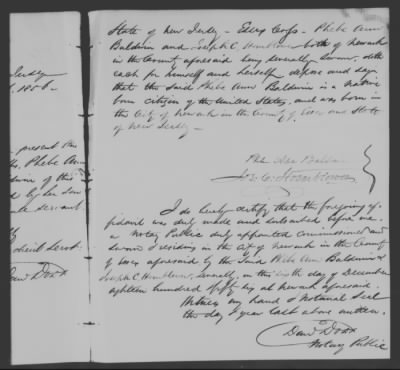 State of New Jersey - Essex Co ss. - Phebe Ann
Baldwin and Joseph C. Hornblower both of Newark
in the County aforesaid being severally sworn, doth
each for himself and herself depose and say
that the said Phebe Ann Baldwin is a native
born citizen of the United States, and was born in
the City of Newark in the County of Essex and State
of New Jersey -
Phe Ann Baldwin
Jos. C. Hornblower
I do hereby certify that the foregoing af-
fidavit was duly made and subscribed before me.
a Notary Public duly appointed commissioned and
sworn & residing in the City of Newark in the County
of Essex aforesaid by the said Phebe Ann Baldwin &
Joseph C. Hornblower, severally, on this sixth day of December
eighteen hundred & fifty six at Newark aforesaid.
Witness my hand & Notarial Seal
the day & year last above written.
Danl Dodd
Notary Public
Jersey
1856.
present Mrs
Mrs. Phebe Ann
Baldwin of this
by her Son
servant
servt.
Danl Dodd